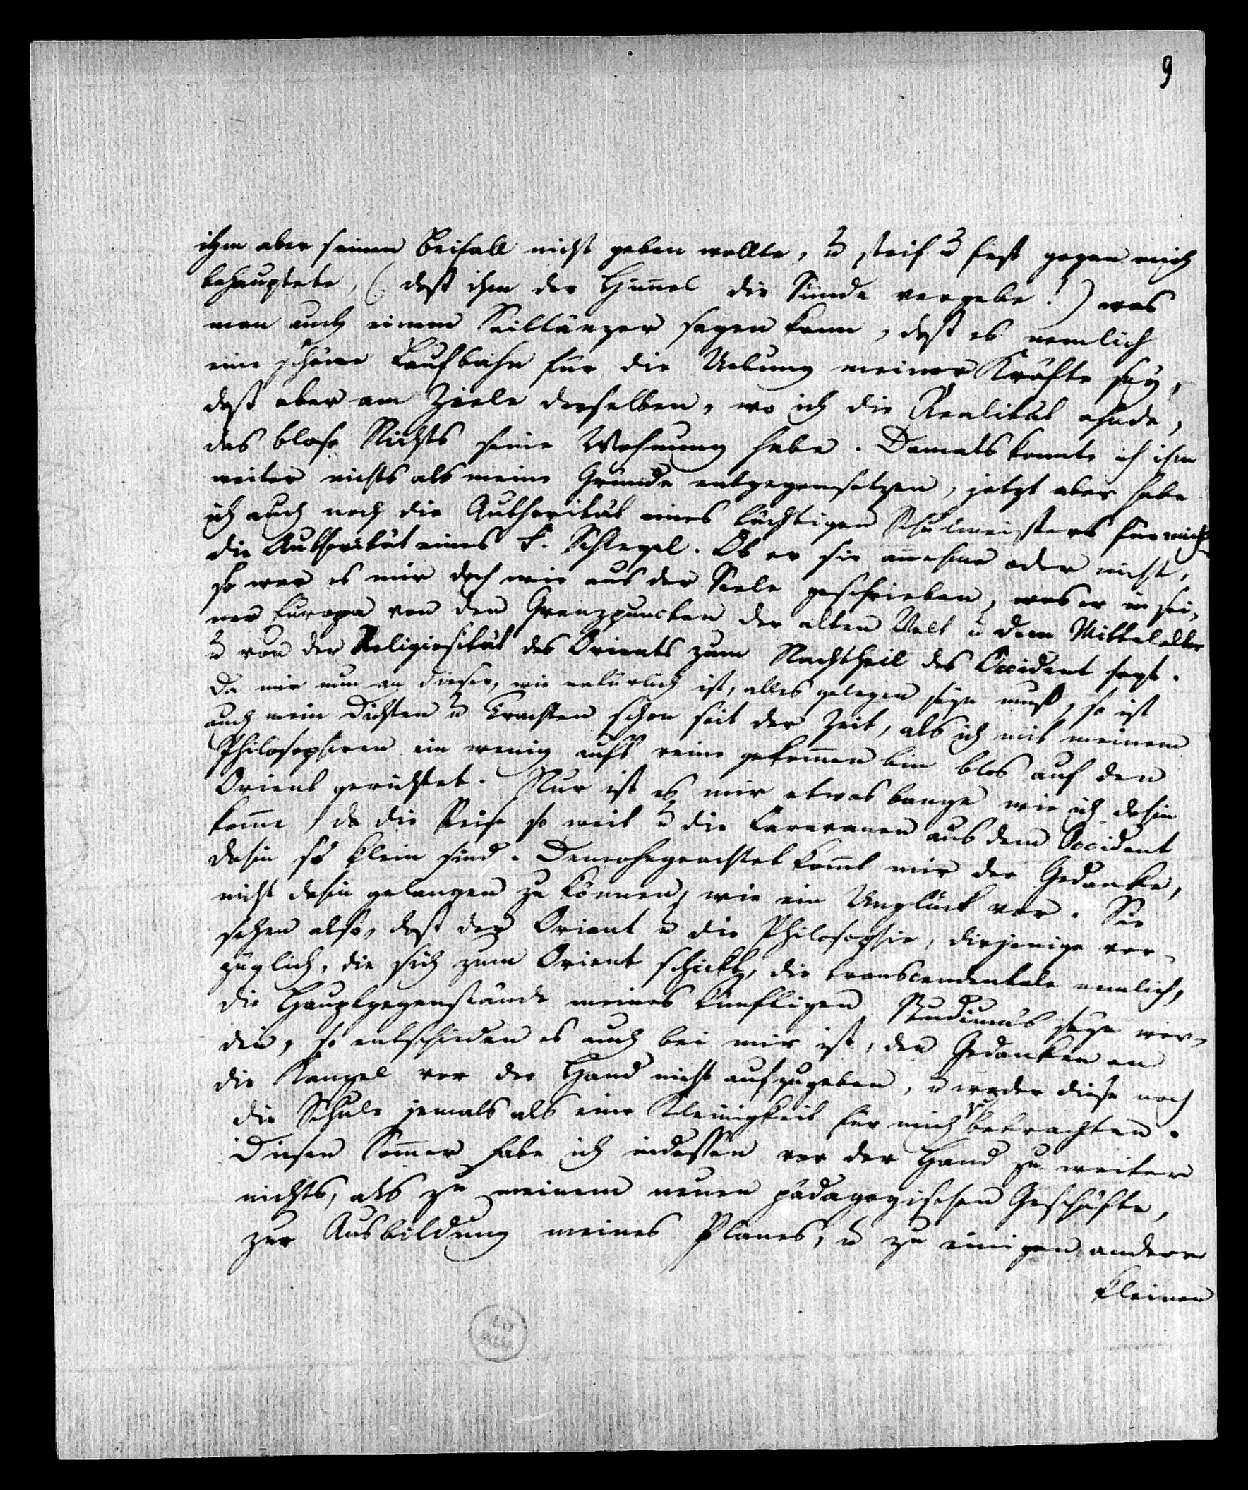 9
ihm aber seinen Beifall nicht geben wollte, u steif u fest gegen mich
behauptete, (: daß ihm der Himmel die Sünde vergebe!) was
man auch einem Seiltänzer sagen kann, daß es nemlich
eine schöne Laufbahn für die Uebung meiner Kräfte sey,
daß aber am Ziele derselben, wo ich die Realität ahnde,
das blose Nichts seine Wohnung habe. Damals konnte ich ihm
weiter nichts als meine Gründe entgegensetzen, jetzt aber habe
ich auch noch die Authorität eines tüchtigen Schulmeisters für mich
die Authorität eines F. Schlegel. Ob er sie annehme oder nicht,
so war es mir doch wie aus der Seele geschrieben, was er in sei-
ner Europa von den Grenzpuncten der alten Welt u dem Mittelalter
u von der Religiosität des Orients zum Nachtheil des Occident sagt.
Da mir nun an dieser, wie natürlich ist, alles gelegen seyn muß, so ist
auch mein Dichten u Trachten schon seit der Zeit, als ich mit meinem
Philosophiren ein wenig aufs reine gekommen bin blos auf den
Orient gerichtet. Nur ist es mir etwas bange wie ich dahin
komme, da die Reise so weit u die Caravanen aus dem Occident
dahin so klein sind. Demohngeachtet kommt mir der Gedanke,
nicht dahin gelangen zu können, wie ein Unglück vor. Sie
sehen also, daß der Orient u die Philosophie, diejenige vor-
züglich, die sich zum Orient schickt, die transcendentale nemlich,
die Hauptgegenstände meines künftigen Studiums seyn wer-
den, so entschieden es auch bei mir ist, den Gedanken an
die Kanzel vor der Hand nicht aufzugeben, u weder diese noch
die Schule jemals als eine Kleinigkeit für mich zu betrachten.
Diesen Sommer habe ich indessen vor der Hand zu weiter
nichts, als zu meinem neuen pädagogischen Geschäfte,
zur Ausbildung meines Planes, u zu einigen andern
kleinen